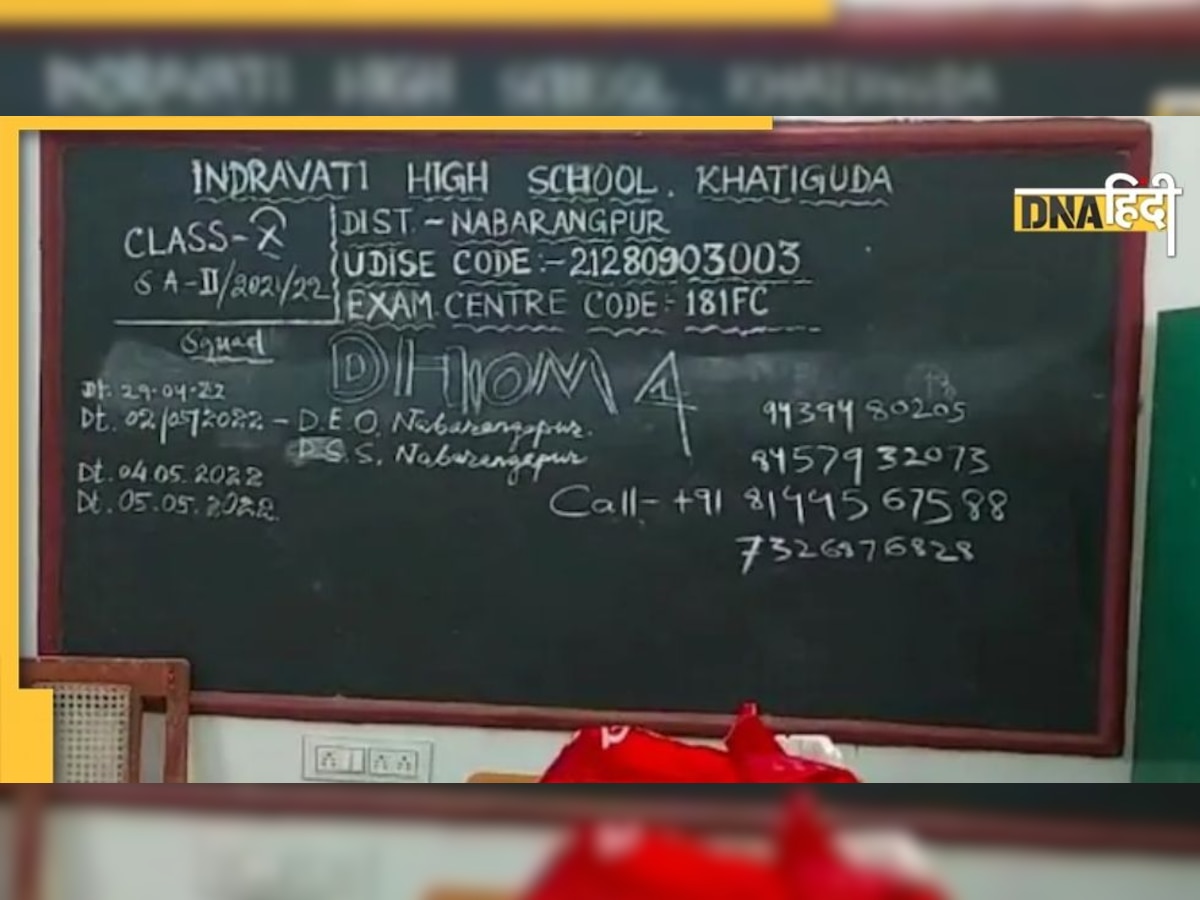 INDRAVATI HIGH SCHOOL. KHATIGUDA
DNA हिंदी
CLASS-X
SA-II/2021/22
DIST.-NABARANGPUR
UDISE CODE:-21280903003
EXAM CENTRE CODE:-181FC
Squad
DHOOM 4
Dt. 29-04-22
Dt. 02/05/2022 - D.E.O. Nabarangapur.
D.S.S. Nabarangapur
Dt. 04.05.2022
Dt. 05.05.2022
9439480205
8457932073
Call- +91 8144567588
7326876828